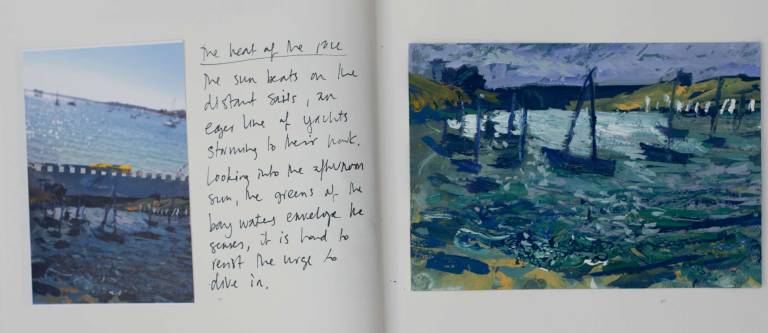 The heat of the race
The sun beats on the
distant sails, an
eager line of yachts
storming to their mark.
Looking into the afternoon
sun, the greens of the
bay waters envelope the
senses, it is hard to
resist the urge to
dive in.